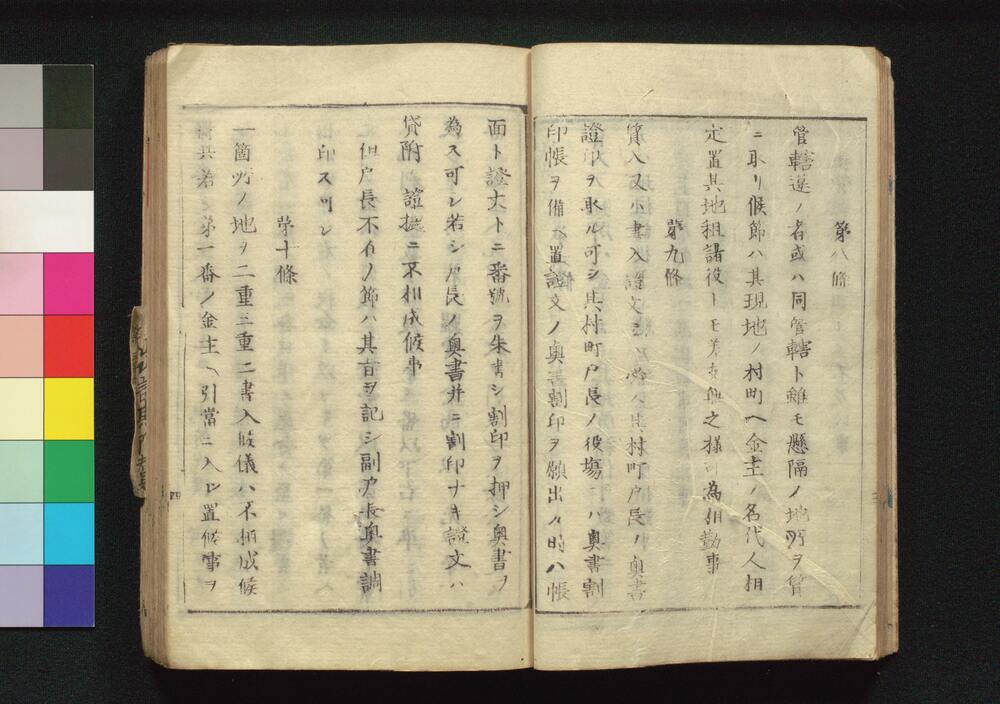 第八條
管轄違ノ者或ハ同管轄ト雖モ懸隔ノ地所ヲ質
ニ取リ候節ハ其現地ノ村町ヘ金主ノ名代人相
定置其地租諸役トモ差支無之様可為相勤事
第九條
質入又ハ書入證文ニハ必ス其村町戸長ノ奥書
證印ヲ取ル可シ其村町戸長ノ役場ニハ奥書割
印帳ヲ備ヘ置證文ノ奥書割印ヲ願出ル時ハ帳
面ト證文トニ番號ヲ朱書シ割印ヲ押シ奥書ヲ
為ス可シ若シ戸長ノ奥書并ニ割印ナキ證文ハ
貸附ノ證據ニ不相成候事
但戸長不在ノ節ハ其旨ヲ記シ副戸長奥書調
印スヘシ
第十條
一箇所ノ地ヲ二重三重ニ書入候儀ハ不相成候
第一番ノ金主ヘ引當ニ入レ置候事ヲ